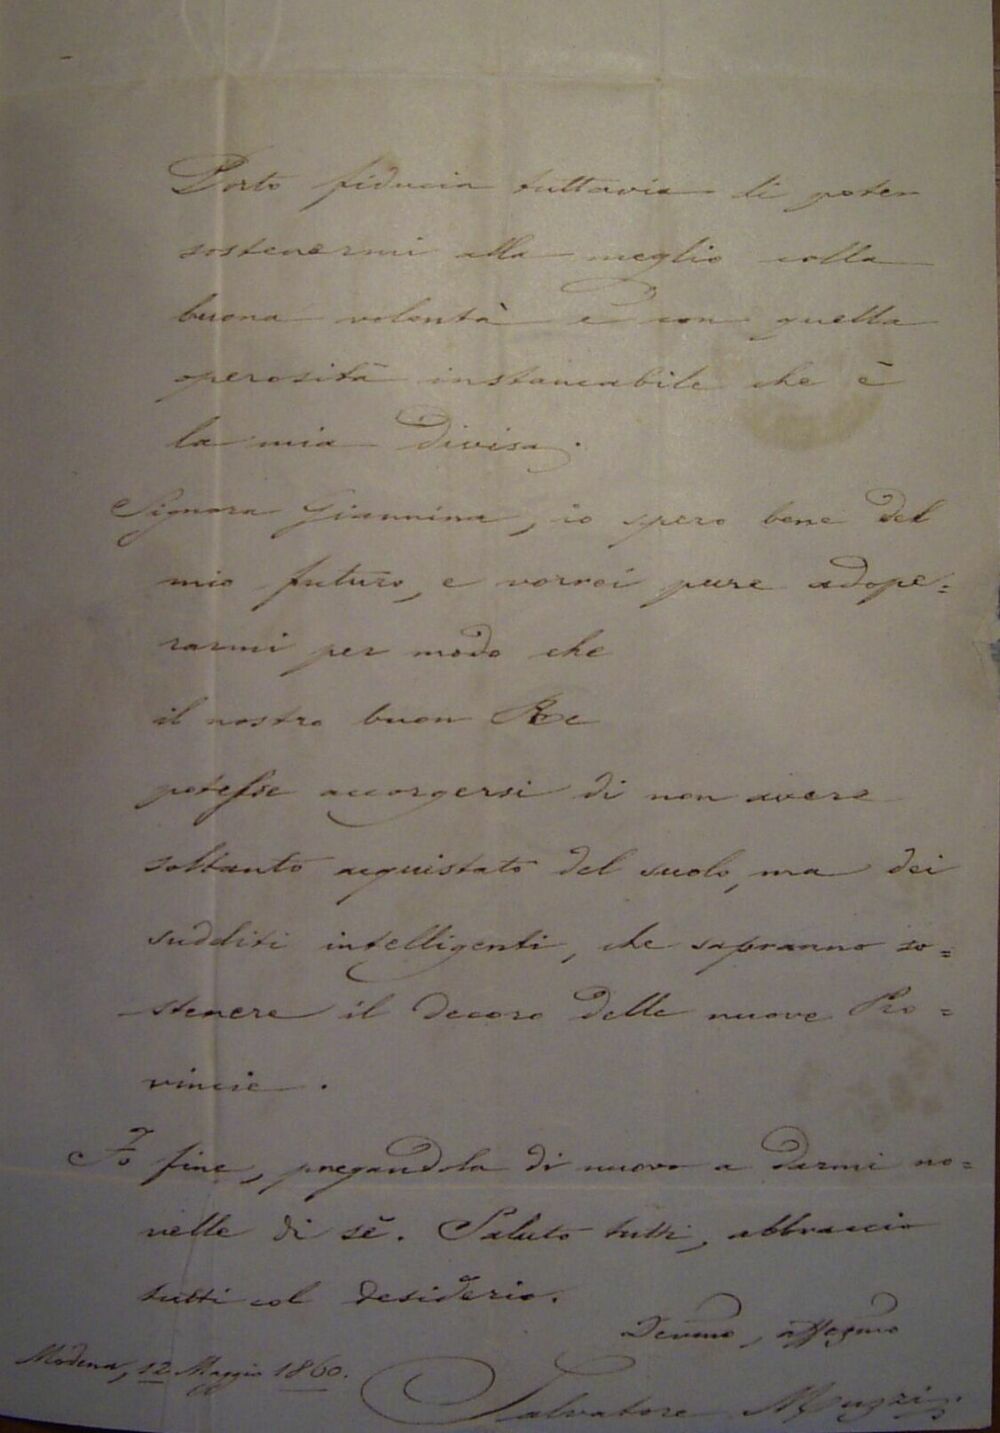 Porto fiducia tuttavia di poter
sostenermi alla meglio colla
buona volontà e con quella
operosità instancabile che è
la mia divisa.
Signora Giannina, io spero bene del
mio futuro, e vorrei pure adope=
rarmi per modo che
il nostro buon Re
potesse accorgersi di non avere
soltanto acquistato del suolo, ma dei
sudditi intelligenti, che sapranno so=
stenere il decoro delle nuove Pro=
vincie.
Io fine, pregandola di nuovo a darmi no=
velle di sè. Saluto tutti, abbraccio
tutti col desiderio.
Devmo, affezmo
Modena, 12 Maggio 1860.
Salvatore Muzzi